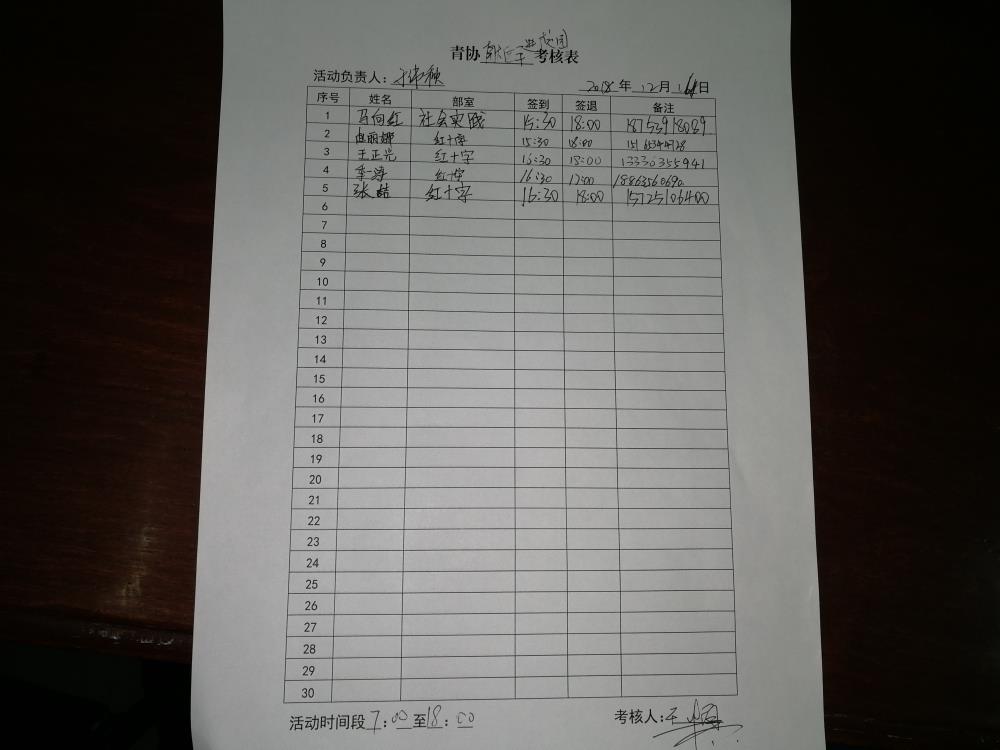 进校园
青协献血车考核表
活动负责人：于
2018年12月16日
序号 姓名 部室 签到 签退 备注
1 马向红 社会实践 15:30 18:00 18753918089
2 赵丽娜 红十字 15:30 18:00
3 王正亮 红十字 16:30 18:00 13330355941
4 季涛 红十字 16:30 17:00 18863560690
5 张喆 红十字 16:30 18:00 15725106400
6
7
8
9
10
11
12
13
14
15
16
17
18
19
20
21
22
23
24
25
26
27
28
29
30
活动时间段7:00至18:00 考核人：